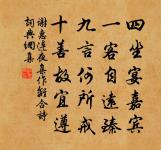 四坐宴嘉賓
一客自遠臻
九言何所戒
十善故宜遵
謝惠連夜集作離合詩
詞典網集